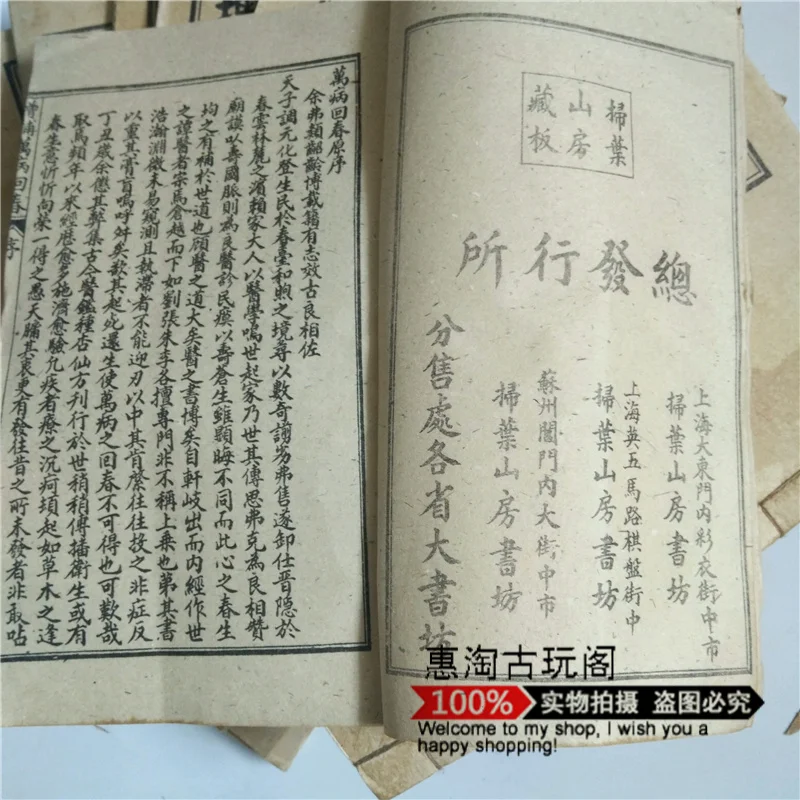 掃葉
山房
藏板
總發行所
上海大東門內彩衣街中市
掃葉山房書坊
上海英五馬路棋盤街中
掃葉山房書坊
蘇州閶門內大街中市
掃葉山房書坊
分售處各省大書坊
萬病回春原序
余弗類齠齡博載籍有志效古良相佐
天子調元化登生民於春臺和煦之境尋以數奇謭劣弗售遂卸仕晉隱於
春雲林麓之濱賴家大人以醫學鳴世起家乃世其傳思弗克為良相贊
廟謨以壽國脈則為良醫診民瘼以壽蒼生雖顯晦不同而此心之春生
均之有補於世道也顧醫之道大矣醫之書博矣自軒岐出而內經作世
之譚醫者宗焉倉越而下如劉張朱李各擅專門非不稱上乘也第其書
浩瀚淵微未易窺測且執滯者不能迎刃以中其肯綮往往投之非症反
以重其膏肓嗚呼舛矣欲其起死還生使萬病之回春不可得也可歎哉
丁丑歲余憊其弊集古今醫鑑種杏仙方刊行於世稍稍傳播衛生或有
取焉頻年以來經歷愈多施濟愈驗凡疾者療之沉疴頃起如草木之逢
春生意忻忻向榮一得之愚天牖其衷更有發往昔之所未發者非敢呫
增補萬病回春 序
惠淘古玩阁
100% 实物拍摄 盗图必究
Welcome to my shop, I wish you a
happy shopping!